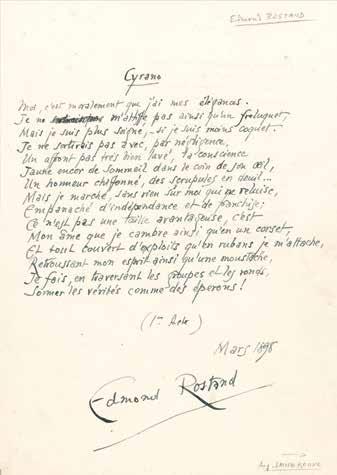 Edmond ROSTAND
Cyrano
Moi, c'est moralement que j'ai mes élégances.
Je ne m'attife pas ainsi qu'un freluquet,
Mais je suis plus soigné, - si je suis moins coquet.
Je ne sortirais pas avec, par négligence,
Un affront pas très bien lavé, la conscience
Jaune encor de sommeil dans le coin de son œil,
Un honneur chiffonné, des scrupules en deuil...
Mais je marche, sans rien sur moi qui ne reluise,
Empanaché d'indépendance et de franchise;
Ce n'est pas une taille avantageuse, c'est
Mon âme que je cambre ainsi qu'en un corset,
Et tout couvert d'exploits qu'en rubans je m'attache,
Retroussant mon esprit ainsi qu'une moustache,
Je fais, en traversant les groupes et les ronds,
Sonner les vérités comme des éperons!
(1er Acte)
Mars 1898
Edmond Rostand